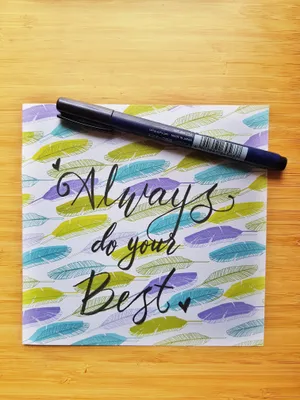 Always
do your
Best.